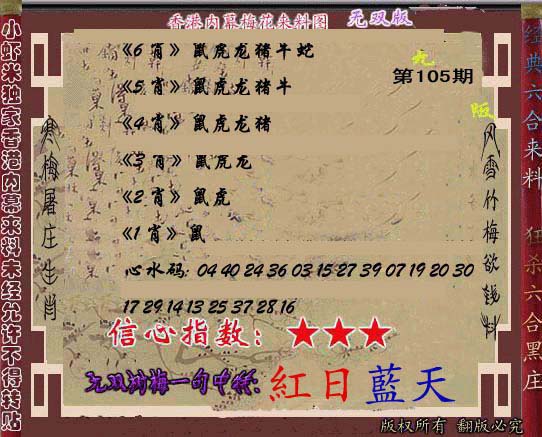 香港内幕梅花来料图 无双版
《6 肖》 鼠虎龙猪牛蛇
九
第105期
《5 肖》 鼠虎龙猪牛
《4 肖》 鼠虎龙猪
《3 肖》 鼠虎龙
《2 肖》 鼠虎
《1 肖》 鼠
心水码: 04 40 24 36 03 15 27 39 07 19 20 30
17 29 14 13 25 37 28 16
信心指数: ★★★
无双树梅一句中特: 紅日藍天
小虾米独家香港内幕来料未经允许不得转贴
寒梅屠庄生肖
风雪竹梅欲钱料
经典六合来料 狂杀六合黑庄
版权所有 翻版必究